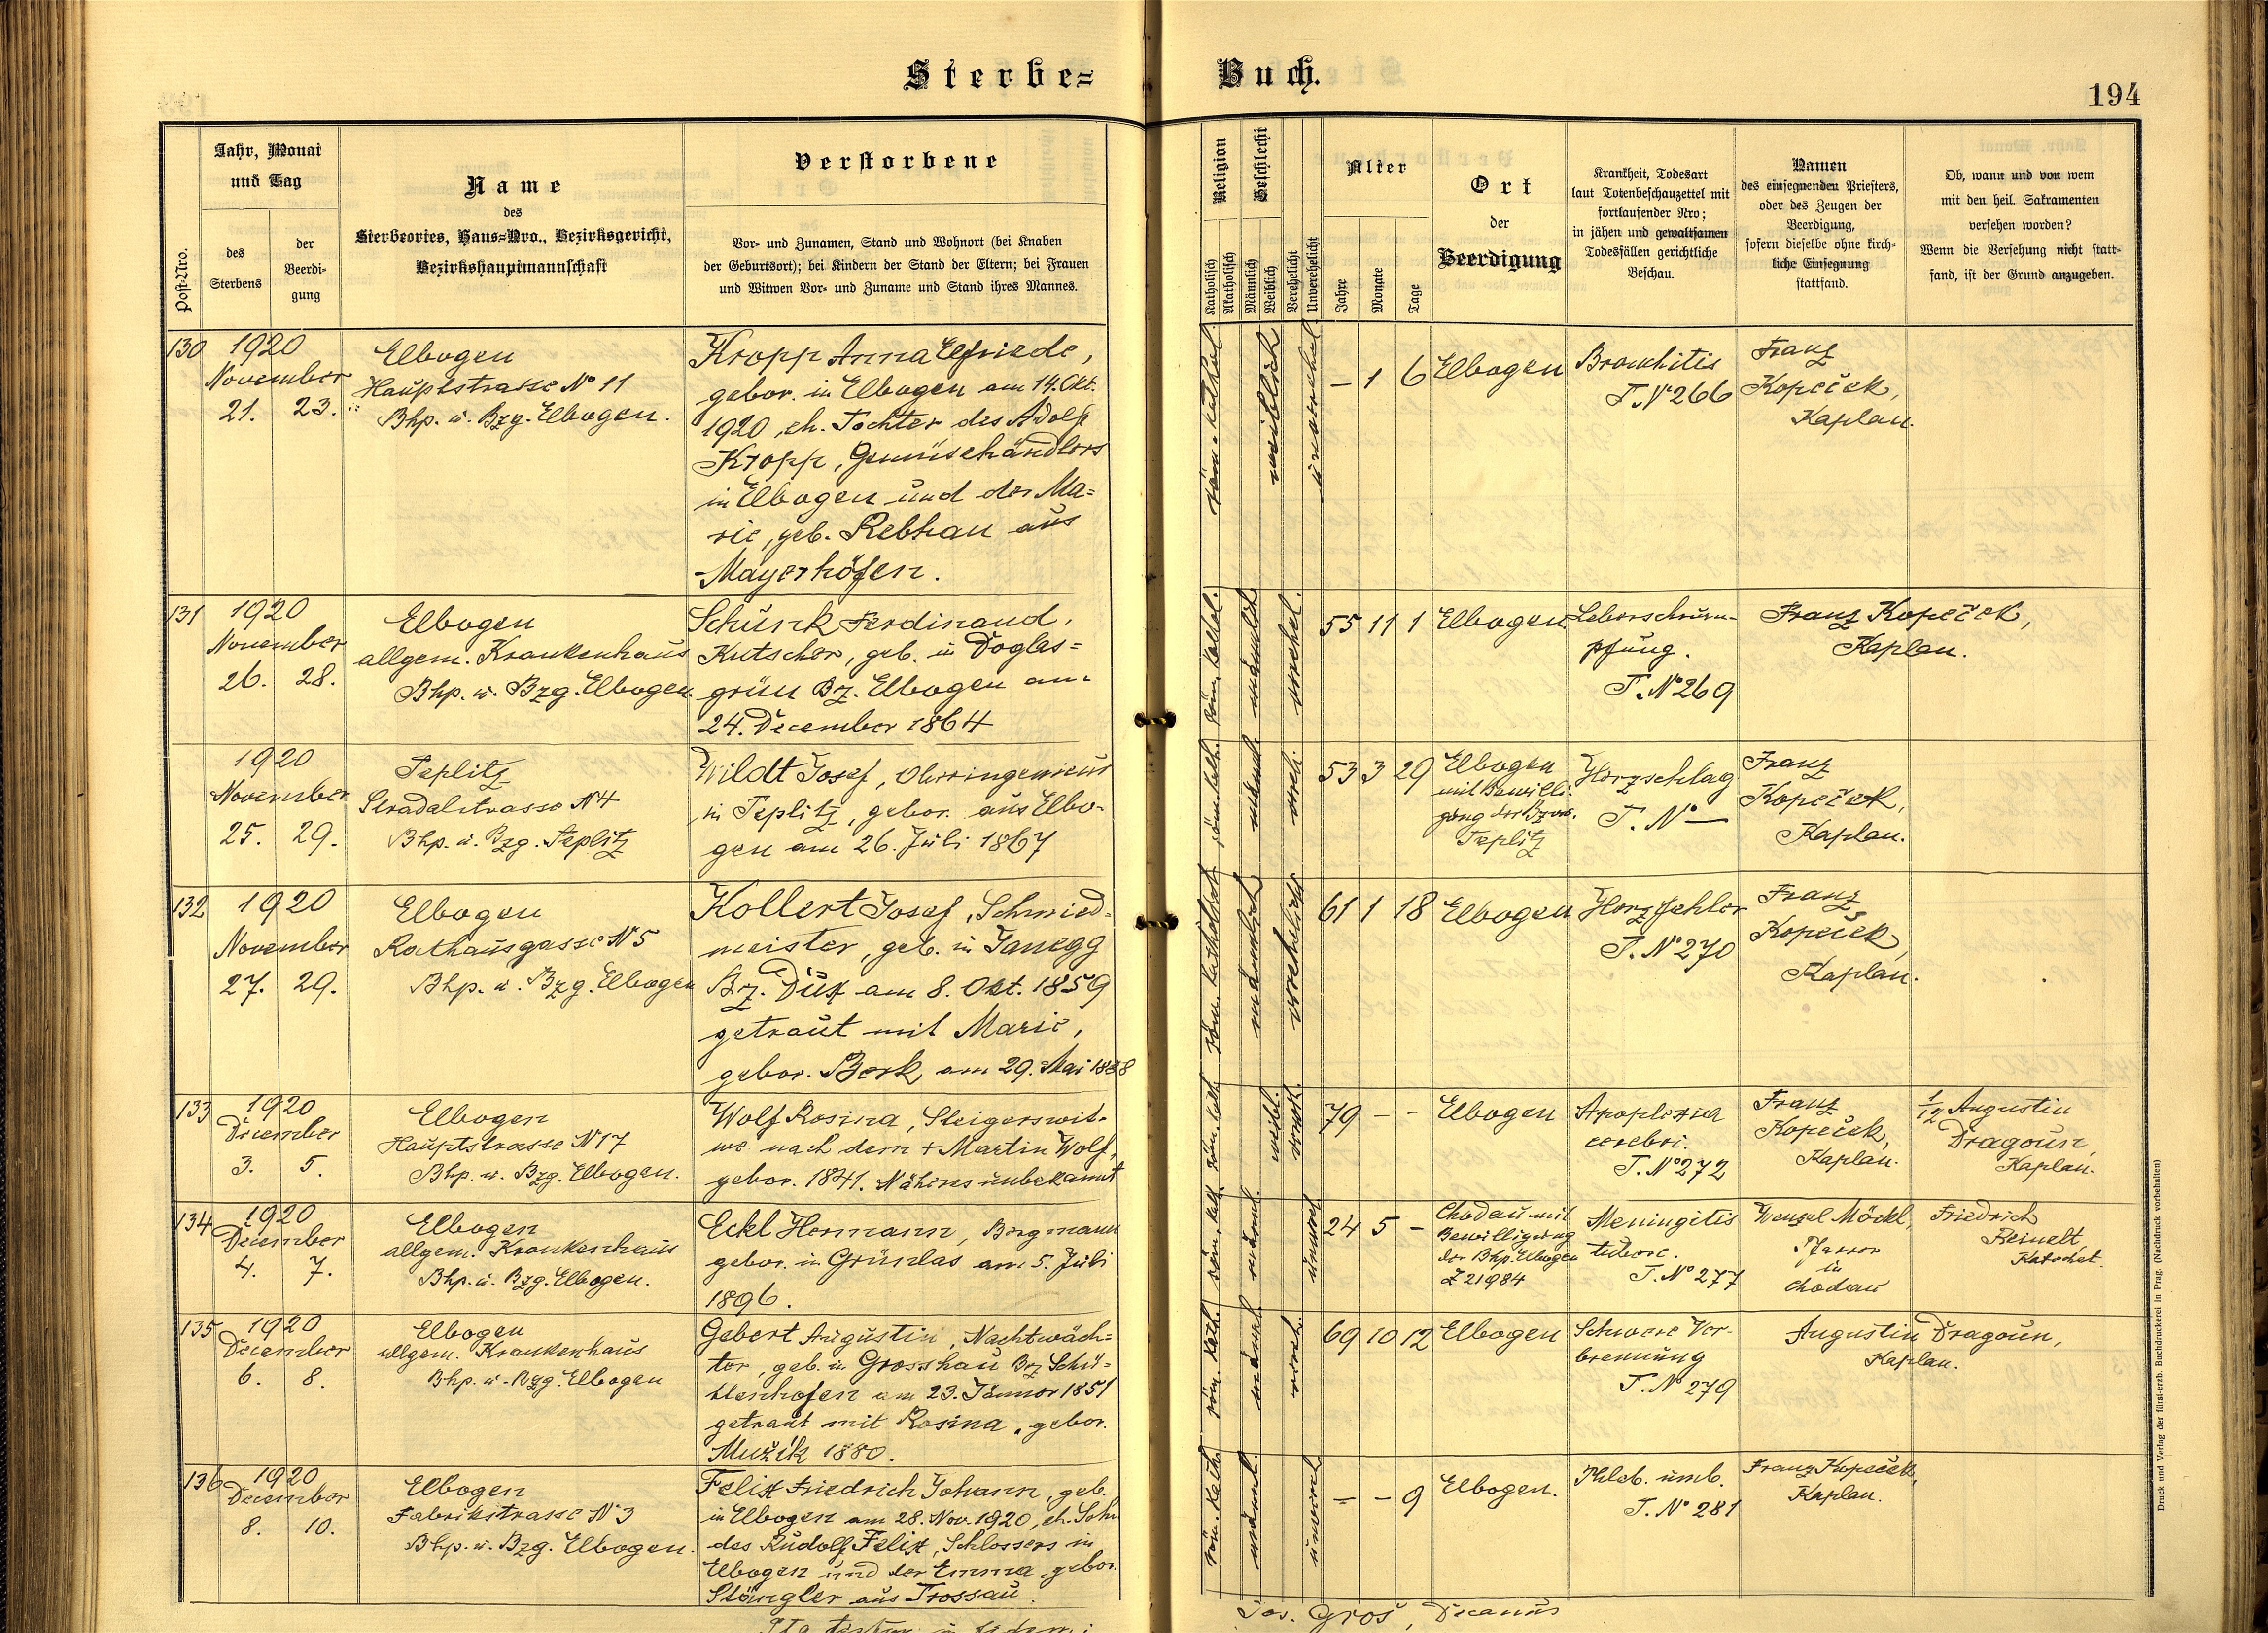 Sterbe=
Buch.
194
Post-Nro.
Jahr, Monat
und Tag
des
Sterbens
der
Beerdi-
gung
Name
des
Sterbeortes, Haus=Nro., Bezirksgericht,
Bezirkshauptmannschaft
Verstorbene
Vor- und Zunamen, Stand und Wohnort (bei Knaben
der Geburtsort); bei Kindern der Stand der Eltern; bei Frauen
und Witwen Vor- und Zuname und Stand ihres Mannes.
Religion
Katholisch
Akatholisch
Geschlecht
Männlich
Weiblich
Verehelicht
Unverehelicht
Alter
Jahre
Monate
Tage
Ort
der
Beerdigung
Krankheit, Todesart
laut Totenbeschauzettel mit
fortlaufender Nro;
in jähen und gewaltsamen
Todesfällen gerichtliche
Beschau.
Namen
des einsegnenden Priesters,
oder des Zeugen der
Beerdigung,
sofern dieselbe ohne kirch-
liche Einsegnung
stattfand.
Ob, wann und von wem
mit den heil. Sakramenten
versehen worden?
Wenn die Versehung nicht statt-
fand, ist der Grund anzugeben.
130
1920
November
21. 23.
Elbogen
Hauptstrasse No 11
Bhp. u. Bzg. Elbogen.
Kropp Anna Elfriede,
gebor. in Elbogen am 14. Okt.
1920, eh. Tochter des Adolf
Kropp, Gemüsehändlers
in Elbogen und der Ma=
rie, geb. Rebhan aus
Mayerhöfen.
röm. kathol.
weiblich
unverehel.
– 1 6
Elbogen
Bronchitis
T. No 266
Franz
Kopeček,
Kaplan.
131
1920
November
26. 28.
Elbogen
allgem. Krankenhaus
Bhp. u. Bzg. Elbogen
Schunk Ferdinand,
Kutscher, geb. in Doglas=
grün Bz. Elbogen am
24. December 1864
röm. kathol.
männlich
verehel.
55 11 1
Elbogen
Leberschrum-
pfung.
T. No 269
Franz Kopeček,
Kaplan.
1920
November
25. 29.
Teplitz
Stradalstrasse No 4
Bhp. u. Bzg. Teplitz
Wildt Josef, Oberingenieur
in Teplitz, gebor. aus Elbo-
gen am 26. Juli 1867
röm. kath.
männl.
vereh.
53 3 29
Elbogen
mit Bewilli-
gung der
Teplitz
Herzschlag
T. No –
Franz
Kopeček,
Kaplan.
132
1920
November
27. 29.
Elbogen
Rathausgasse No 5
Bhp. u. Bzg. Elbogen
Kollert Josef, Schmied-
meister, geb. in Janegg
Bz. Dux am 8. Okt. 1859
getraut mit Marie,
gebor. Berk am 29. Mai 1888
röm. katholisch
männlich
verehelicht
61 1 18
Elbogen
Herzfehler
T. No 270
Franz
Kopeček,
Kaplan.
133
1920
December
3. 5.
Elbogen
Hauptstrasse No 17
Bhp. u. Bzg. Elbogen.
Wolf Rosina, Steigerswit-
we nach dem + Martin Wolf,
gebor. 1841. Näheres unbekannt
röm. kath
weibl.
verwit.
79 – –
Elbogen
Apoplexia
cerebri.
T. No 272
Franz
Kopeček,
Kaplan.
1/12 Augustin
Dragoun,
Kaplan.
134
1920
December
4. 7.
Elbogen
allgem. Krankenhaus
Bhp. u. Bzg. Elbogen.
Eckl Hermann, Bergmann
gebor. in Grünlas am 5. Juli
1896.
röm. kath.
männl.
unvereh
24 5 –
Chodau mit
Bewilligung
der Bhp. Elbogen
Z 21984
Meningitis
tuberc.
T. No 277
Wenzel Möckl,
Pfarrer
in
Chodau
Friedrich
Reinelt
Katechet.
135
1920
December
6. 8.
Elbogen
allgem. Krankenhaus
Bhp. u. Bzg. Elbogen
Gebert Augustin, Nachtwäch=
ter, geb. in Grosshau Bz Schü=
ttenhofen am 23. Jänner 1851
getraut mit Rosina, gebor.
Mužik 1880.
röm. kath.
männl
vereh.
69 10 12
Elbogen
Schwere Ver-
brennung
T. No 279
Augustin Dragoun,
Kaplan.
136
1920
December
8. 10.
Elbogen
Fabrikstrasse No 3
Bhp. u. Bzg. Elbogen.
Felix Friedrich Johann, geb.
in Elbogen am 28. Nov. 1920, eh. Sohn
des Rudolf Felix, Schlossers in
Elbogen und der Emma gebor.
Stöngler aus Trossau.
röm. kath.
männl.
unvereh
– – 9
Elbogen.
Phleb. umb.
T. No 281
Franz Kopeček,
Kaplan.
Jos. Groš, Decanus
Druck und Verlag der fürst-erzb. Buchdruckerei in Prag. (Nachdruck vorbehalten)